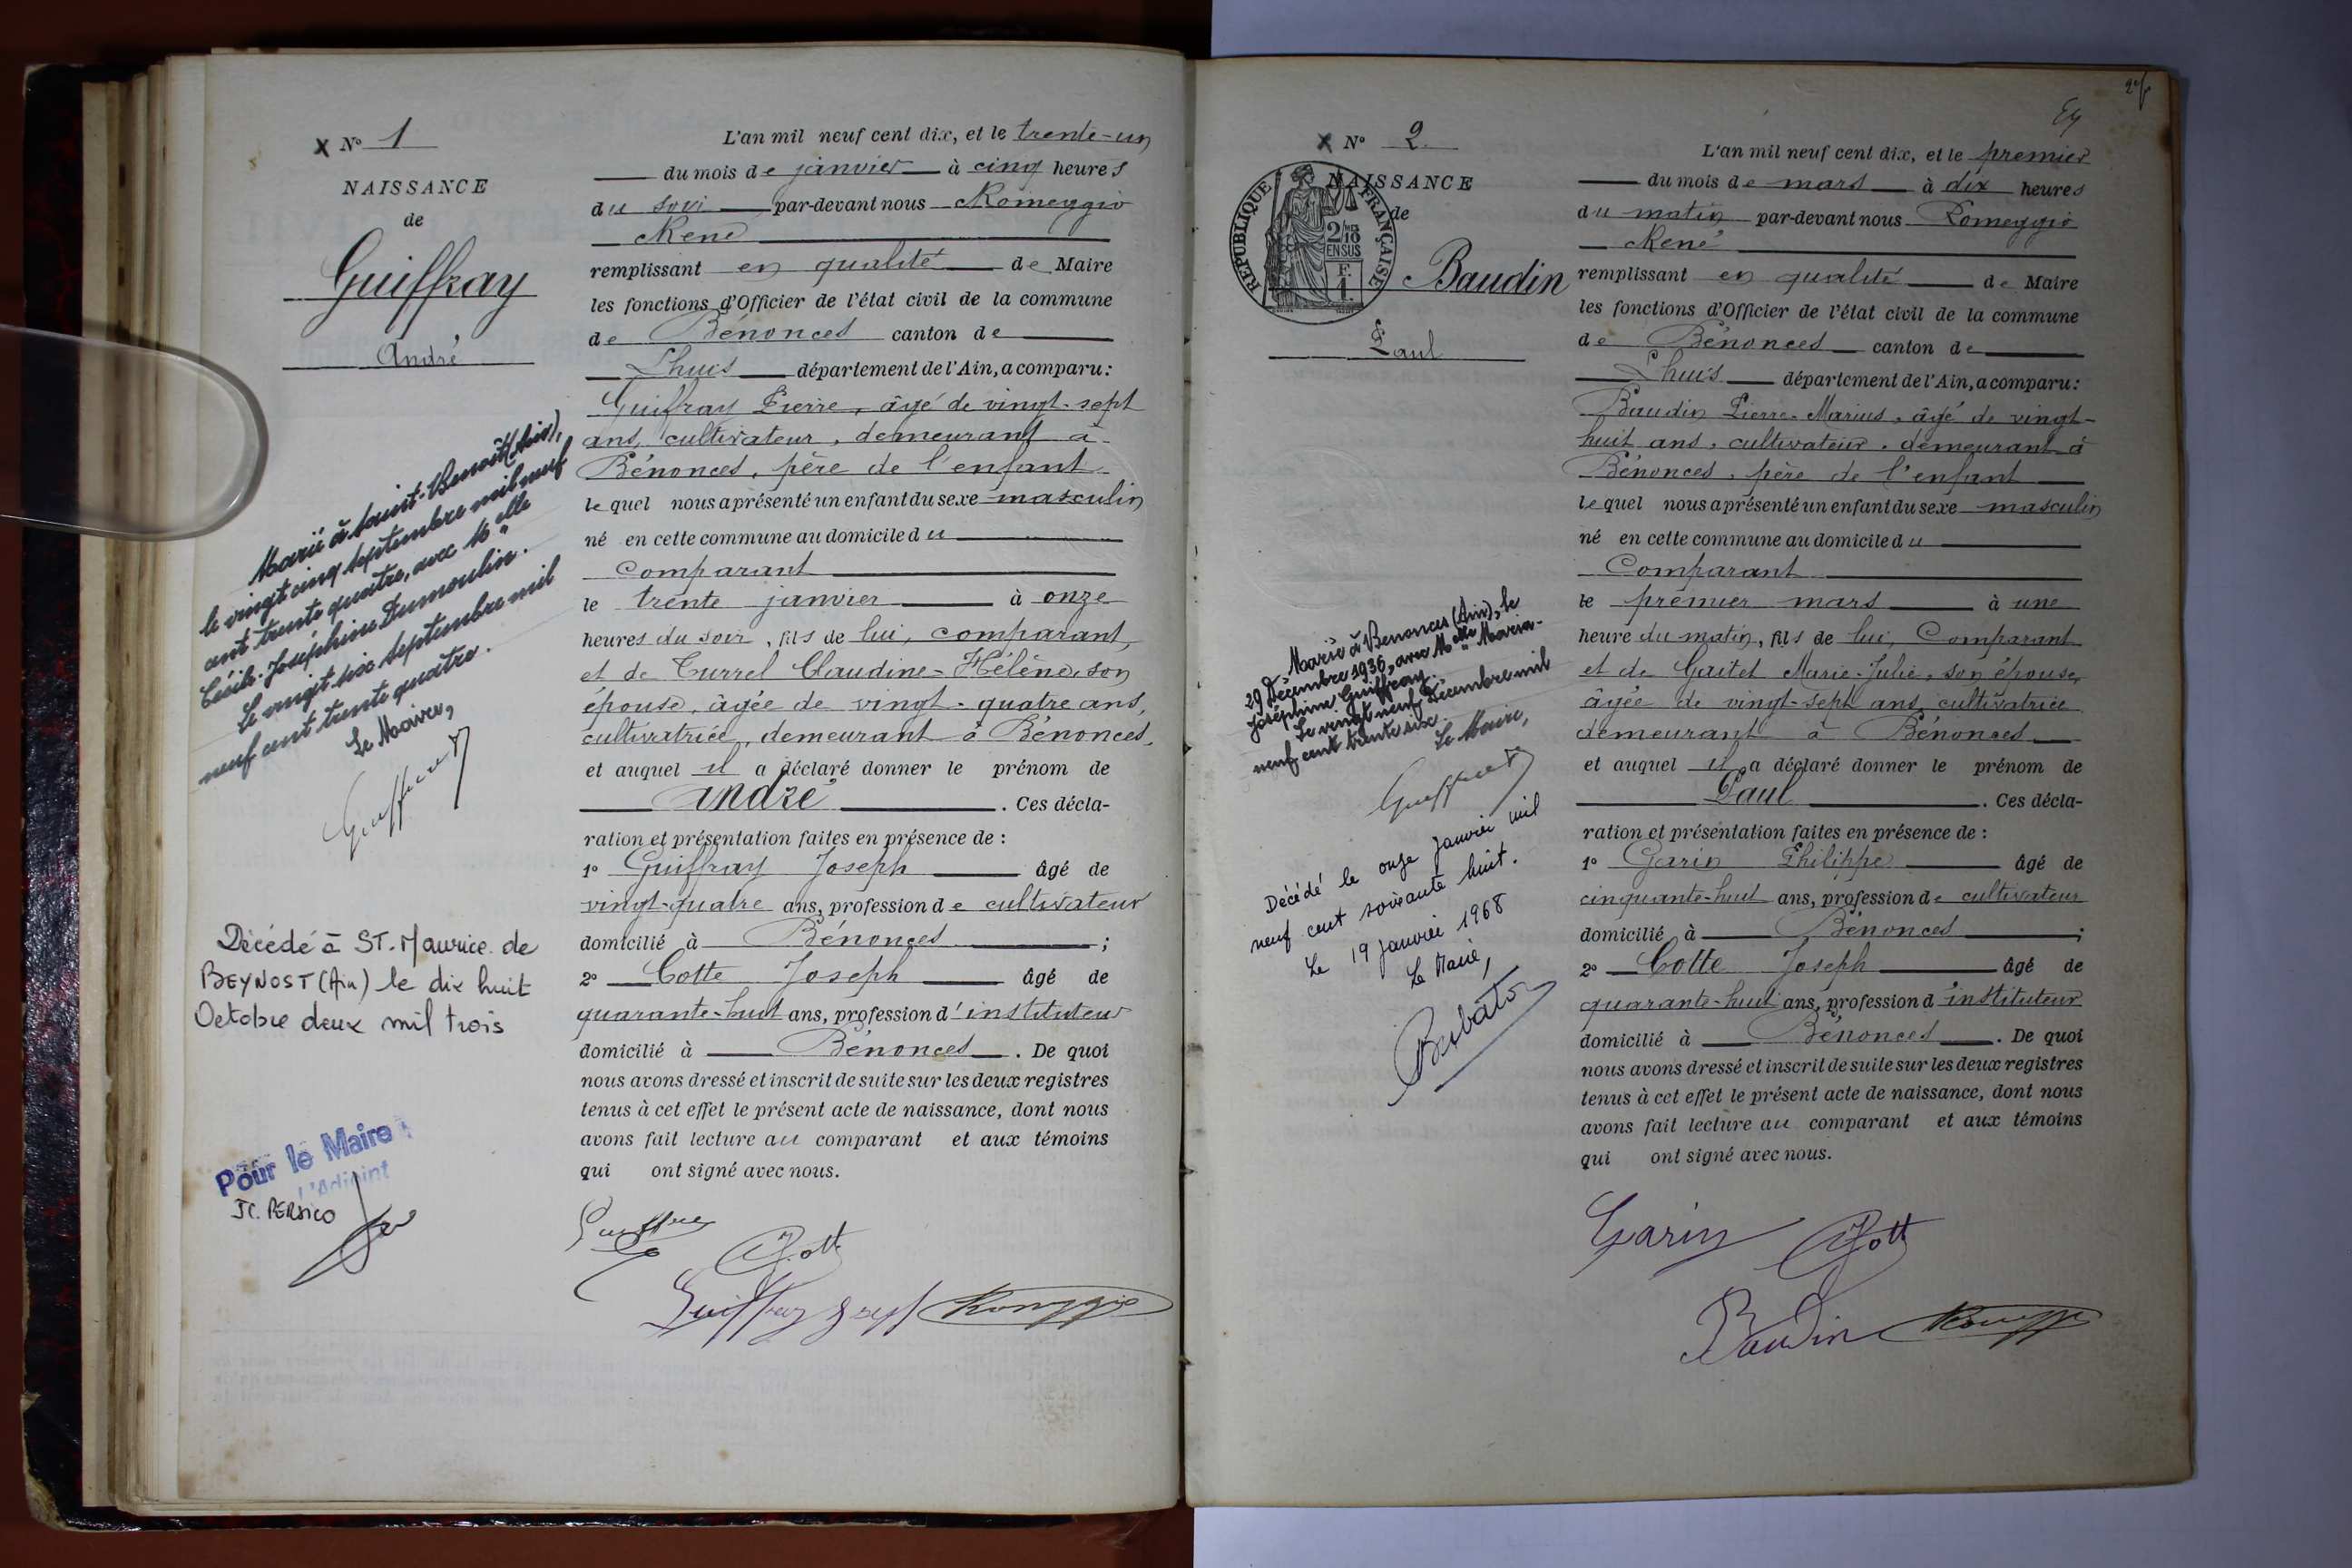 X N° 1
NAISSANCE
de
Guiffray
André
Marié à Saint-Benoît (Ain),
le vingt cinq Septembre mil neuf
cent trente quatre, avec Melle
Cécile-Joséphine Dumoulin.
Le vingt-six Septembre mil
neuf cent trente quatre.
Le Maire,
Décédé à ST. Maurice de
BEYNOST (Ain) le dix huit
Octobre deux mil trois
Pour le Maire
L'Adjoint
JC. PERSICO
L'an mil neuf cent dix, et le trente-un
du mois de janvier à cinq heures
du soir par-devant nous Romeggio
René
remplissant en qualité de Maire
les fonctions d'Officier de l'état civil de la commune
de Bénonces canton de
Lhuis département de l'Ain, a comparu:
Guiffray Pierre, âgé de vingt-sept
ans, cultivateur, demeurant à
Bénonces, père de l'enfant
lequel nous a présenté un enfant du sexe masculin
né en cette commune au domicile du
Comparant
le trente janvier à onze
heures du soir, fils de lui, comparant,
et de Turrel Claudine-Hélène, son
épouse, âgée de vingt-quatre ans,
cultivatrice, demeurant à Bénonces,
et auquel il a déclaré donner le prénom de
André. Ces décla-
ration et présentation faites en présence de :
1° Guiffray Joseph âgé de
vingt-quatre ans, profession de cultivateur
domicilié à Bénonces ;
2° Cotte Joseph âgé de
quarante-huit ans, profession d'instituteur
domicilié à Bénonces. De quoi
nous avons dressé et inscrit de suite sur les deux registres
tenus à cet effet le présent acte de naissance, dont nous
avons fait lecture au comparant et aux témoins
qui ont signé avec nous.
Guiffray Joseph Romeggio
X N° 2
NAISSANCE
de
REPUBLIQUE FRANÇAISE
2/10
EN SUS
F.
1.
Baudin
Paul
Marié à Benonces (Ain), le
29 Décembre 1936, avec Melle Maria-
Joséphine Guiffray.
Le vingt neuf Décembre mil
neuf cent trente six.
Le Maire,
Décédé le onze janvier mil
neuf cent soixante huit.
Le 19 janvier 1968
Le Maire,
L'an mil neuf cent dix, et le premier
du mois de mars à dix heures
du matin par-devant nous Romeggio
René
remplissant en qualité de Maire
les fonctions d'Officier de l'état civil de la commune
de Bénonces canton de
Lhuis département de l'Ain, a comparu:
Baudin Pierre-Marius, âgé de vingt-
huit ans, cultivateur, demeurant à
Bénonces, père de l'enfant
lequel nous a présenté un enfant du sexe masculin
né en cette commune au domicile du
Comparant
le premier mars à une
heure du matin, fils de lui, Comparant
et de Gaitet Marie-Julie, son épouse,
âgée de vingt-sept ans, cultivatrice
demeurant à Bénonces
et auquel il a déclaré donner le prénom de
Paul. Ces décla-
ration et présentation faites en présence de :
1° Garin Philippe âgé de
cinquante-huit ans, profession de cultivateur
domicilié à Bénonces ;
2° Cotte Joseph âgé de
quarante-huit ans, profession d'instituteur
domicilié à Bénonces. De quoi
nous avons dressé et inscrit de suite sur les deux registres
tenus à cet effet le présent acte de naissance, dont nous
avons fait lecture au comparant et aux témoins
qui ont signé avec nous.
Garin
Baudin